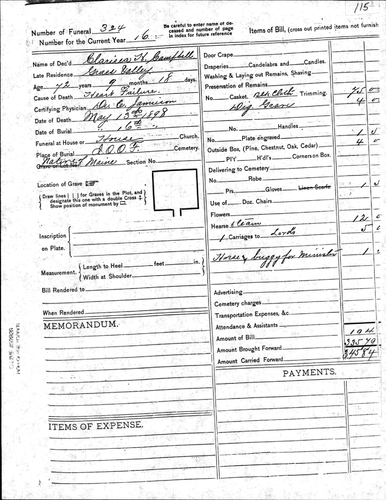 115
Number of Funeral 324
Number for the Current Year 16
Be carefull to enter name of deceased and number of page in index for future reference
Items of Bill, (cross out printed items not furnish
Name of Dec'd Clarissa H. Campbell
Late Residence Grass Valley
Age, 72 years 9 months 18 days.
Cause of Death Heart Failure.
Certifying Physician Dr. C. Jamison
Date of Death May 13th 1898
Date of Burial " 16th "
Funeral at House Church,
Place of Burial I.O.O.F. Cemetery.
Native of Maine Section No.
Location of Grave
Draw lines for Graves in the Plot, and designate this one with a double Cross
Show position of monument by
Inscription on Plate.
Measurement. Length to Heel feet in.
Width at Shoulder
Bill Rendered to
When Rendered
MEMORANDUM.
ITEMS OF EXPENSE.
Door Crape
Draperies Candelabra and Candles.
Washing & Laying out Remains, Shaving
Preservation of Remains
No. Casket, Blk Cloth Trimming. 75 0
Dig Grave 4 0
No. Handles
Plate engraved 1 5
Outside Box, (Pine, Chestnut, Oak, Cedar) 4 0
PlY H'dl's Corners on Box.
Delivering to Cemetery
No. Robe
Prs. Gloves Linen Scarfs 1 5
Use of Doc. Chairs
Flowers
Hearse & team 12 0
1 Carriages to Lords 5 0
Horse & buggy for Minister 1
Advertising
Cemetery charges
Transportation Expenses, &c
Attendance & Assistants
Amount of Bill 104
Amount Brought Forward 33579
Amount Carried Forward 34584
PAYMENTS.